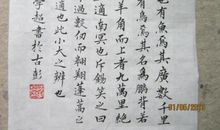 也有魚焉其廣數千里
有鳥焉其名為鵬背若
羊角而上者九萬里絕
適南冥也斥鴳笑之曰
過數仞而翱翔蓬蒿之
適也此小大之辨也
學超書於古彭